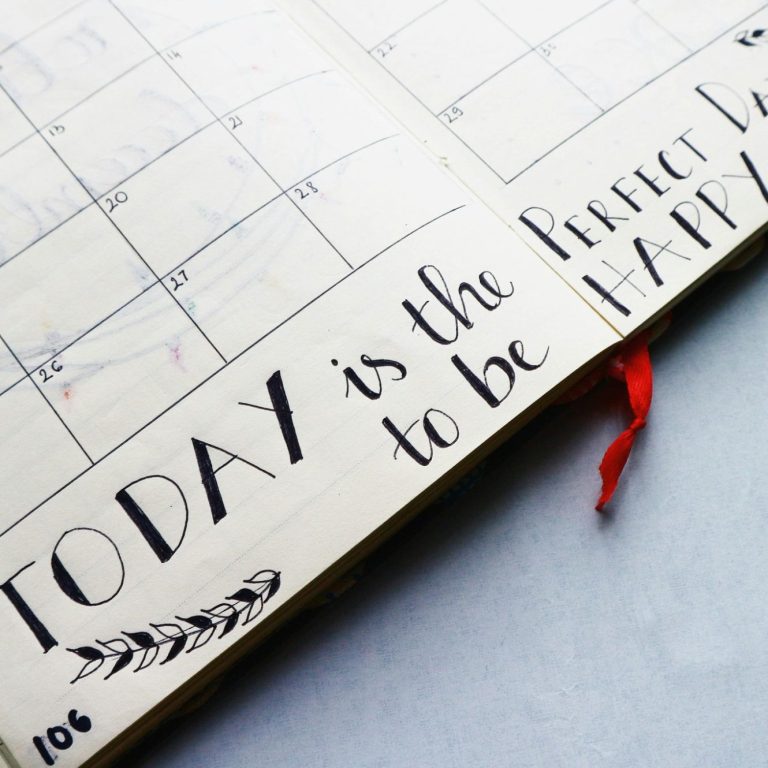 13
14
20
21
26
27
28
TODAY is the
to be
106
22
29
30
PERFECT DA
HAPPY